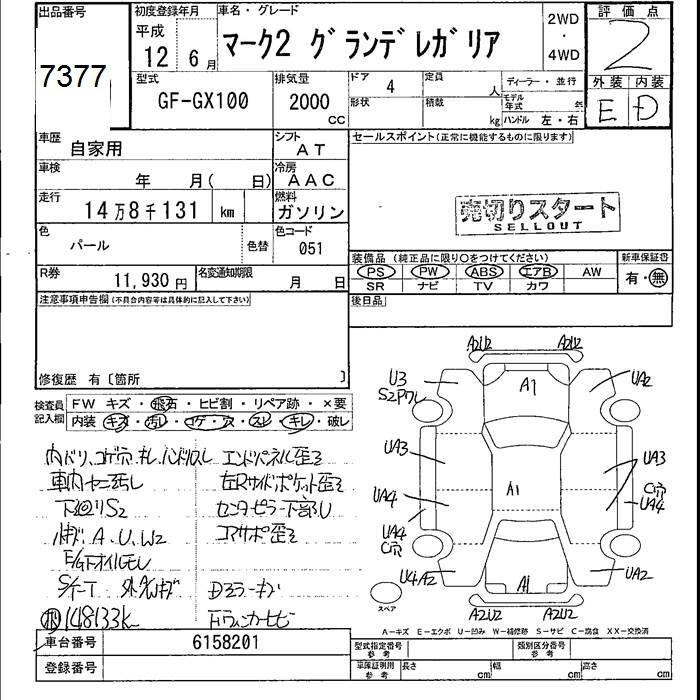 出品番号
7377
初度登録年月
平成 12 6月
車名・グレード
マーク2 グランデレガリア
2WD
・
4WD
評価点
2
外装 内装
E D
型式
GF-GX100
排気量
2000 CC
ドア 4
定員 人
ディーラー・並行
形状
積載 kg
モデル年式
ハンドル 左・右
車歴
自家用
シフト
AT
セールスポイント(正常に機能するものに限ります)
車検
年 月( 日)
冷房
AAC
走行
14万8千131 km
燃料
ガソリン
売切りスタート
SELLOUT
色
パール
色替
色コード
051
装備品 (純正品に限り○をつけてください)
新車保証書
PS PW ABS エアB AW
有・無
SR ナビ TV カワ
R券
11,930円
名変通知期限
月 日
後日品
注意事項申告欄(不具合内容等は具体的に記入して下さい)
修復歴 有〔箇所 〕
検査員記入欄
FW キズ・飛石・ヒビ割・リペア跡・×要
内装 キズ・汚れ・コゲ・穴・スレ・キレ・破レ
内バリ、コゲ穴 キレ ハンドルスレ
車内ヤニ汚し
下回りS2
A.U.W2
E/G下オイルモレ
148133k
エンドパネル歪ミ
左Rサイドポケット歪ミ
センターピラー下部U
コアサポ歪ミ
Dミラーキズ
A2U2 A2U2
U3
S2
A1
UA2
UA3
A1
UA3
UA4
C穴
UA4
UA4
C穴
U4A2
A1
UA2
A2U2 A2U2
スペア
A－キズ E－エクボ U－凹み W－補修跡 S－サビ C－腐食 XX－交換済
車台番号
6158201
登録番号
型式指定番号
参考
類別区分番号
参考
車庫証明用
参考
長さ cm
幅 cm
高さ cm